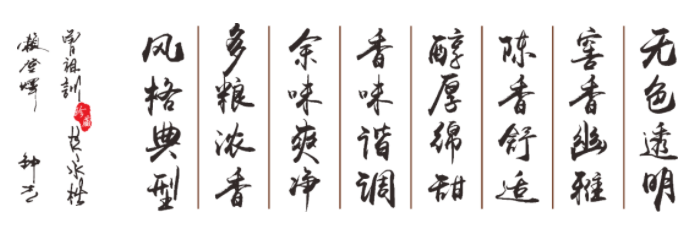 无色透明
窖香幽雅
陈香舒适
醇厚绵甜
香味谐调
余味爽净
多粮浓香
风格典型
曾祖訓